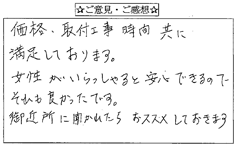 ☆ご意見・ご感想☆
価格・取付工事 時間 共に
満足しております。
女性がいらっしゃると安心できるので
それも良かったです。
御近所に聞かれたら おススメしておきます